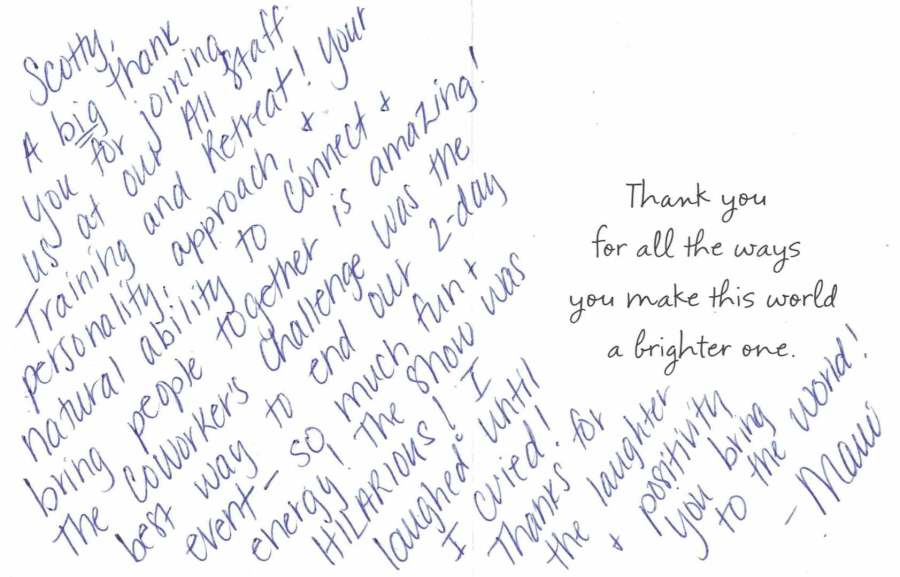 Scotty,
A big thank
you for joining
us at our All Staff
Training and Retreat! Your
personality, approach, &
natural ability to connect &
bring people together is amazing!
The Coworkers Challenge was the
best way to end our 2-day
event - so much fun +
energy! The show was
HILARIOUS! I
laughed until
I cried!
Thanks for
the laughter
+ positivity
you bring
to the world!
Thank you
for all the ways
you make this world
a brighter one.